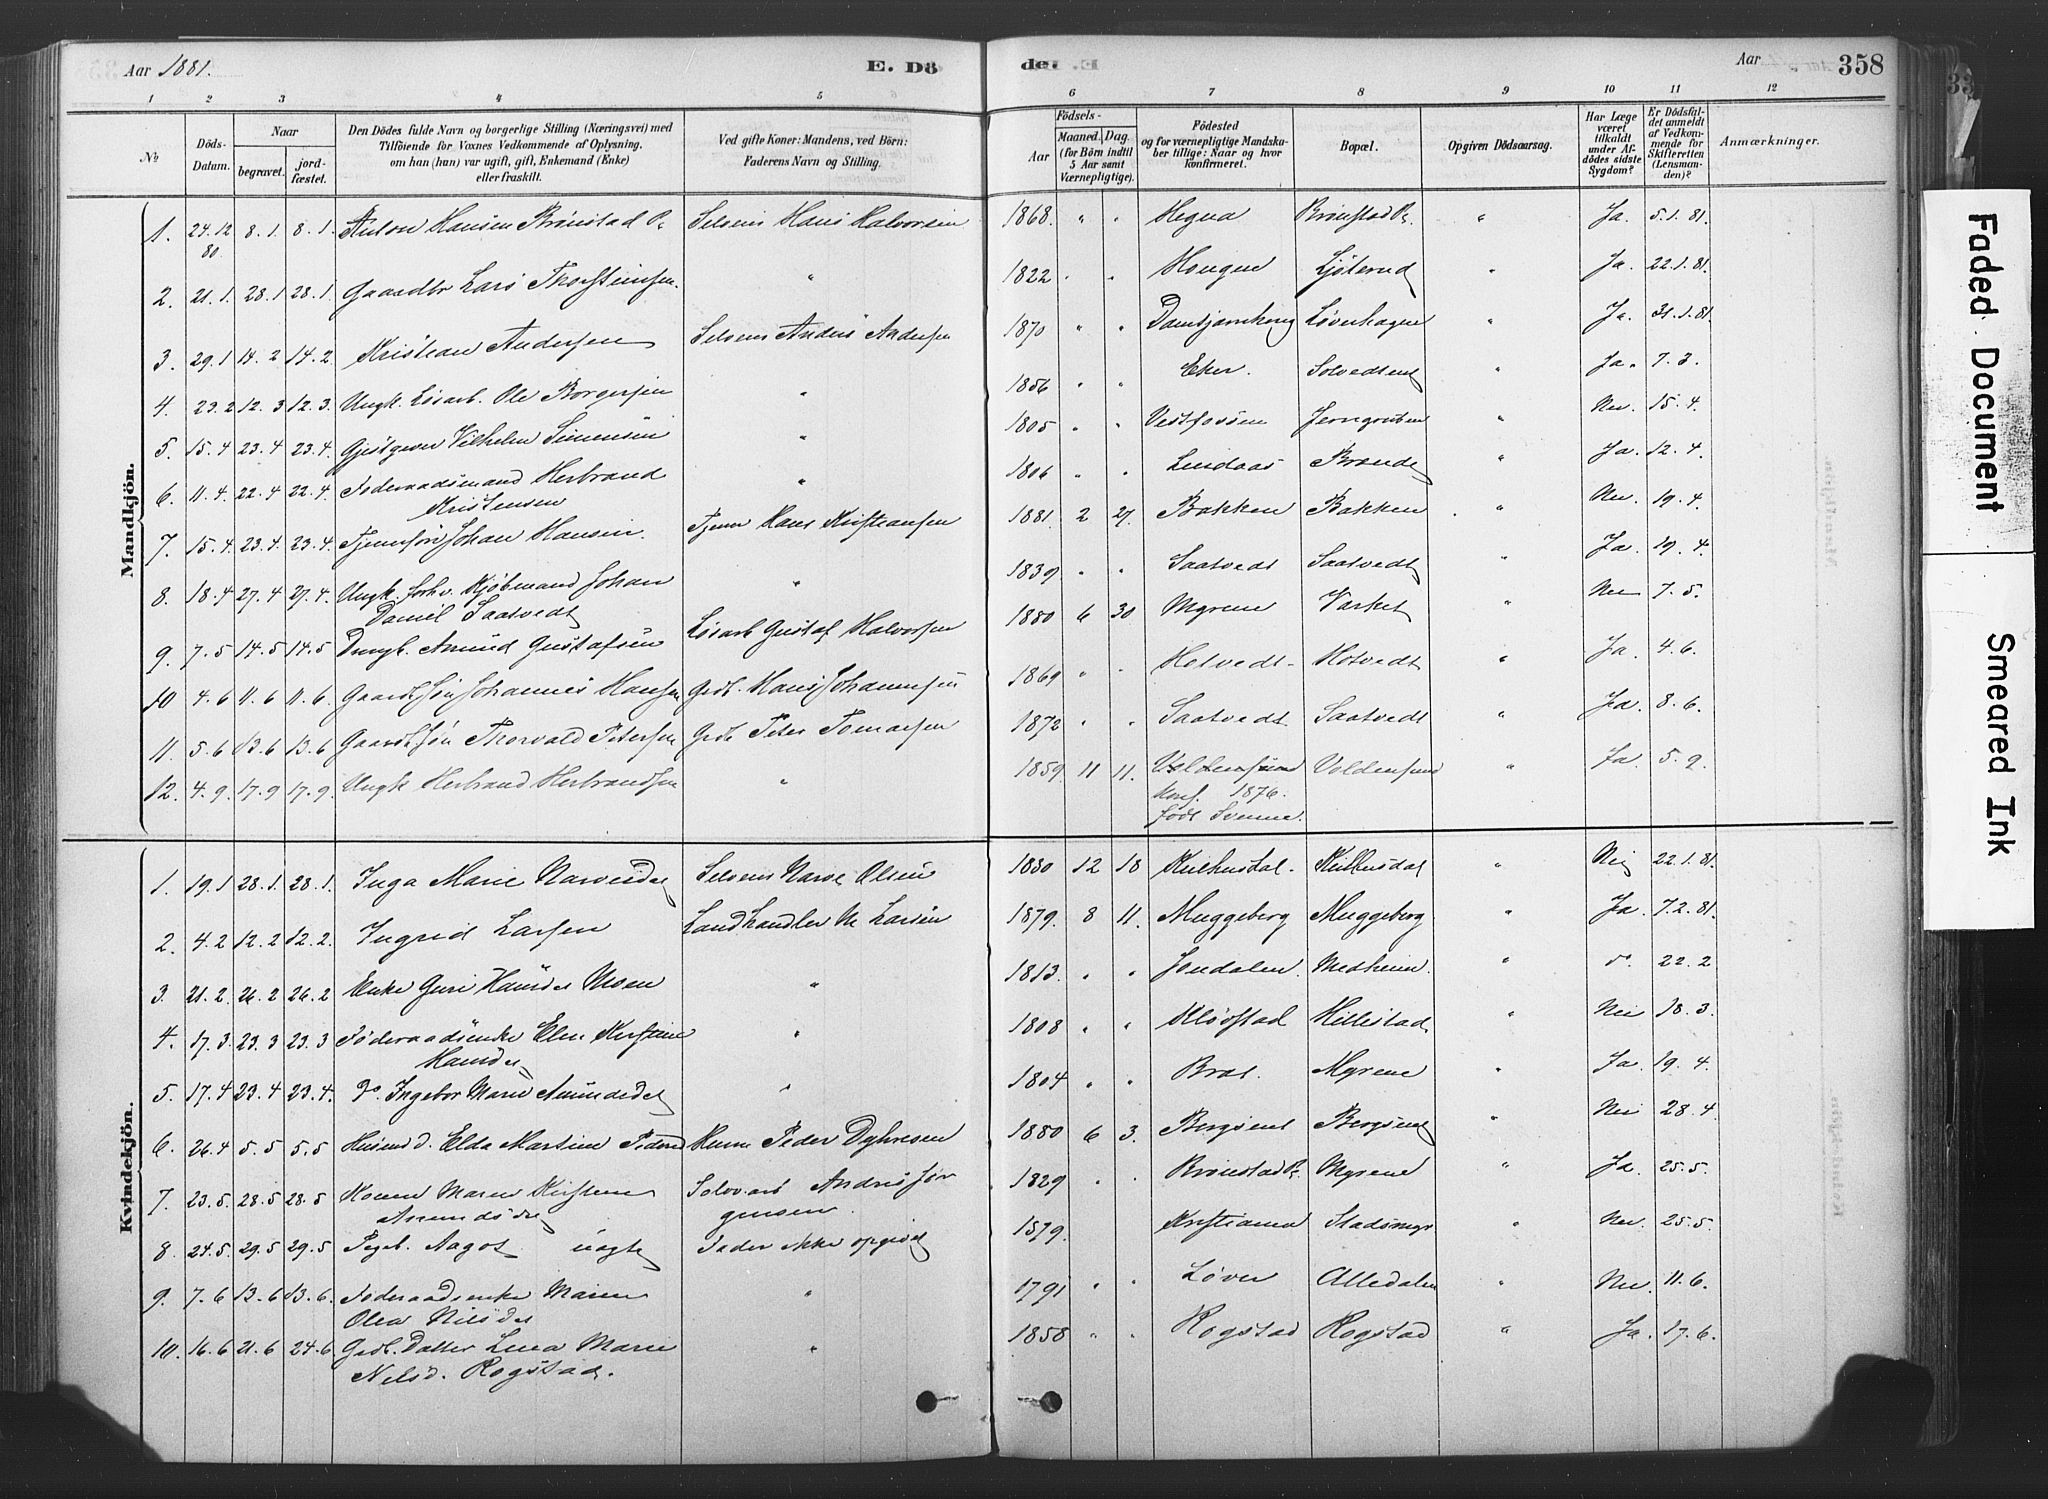 Aar 1881.
E. Dö
de. E.
Aar
358
1 2 3 4 5 6 7 8 9 10 11 12
No
Döds-
Datum.
Naar
begravet.
jord-
fæstet.
Den Dödes fulde Navn og borgerlige Stilling (Næringsvei) med
Tilföiende for Voxnes Vedkommende af Oplysning,
om han (hun) var ugift, gift, Enkemand (Enke)
eller fraskilt.
Ved gifte Koner: Mandens, ved Börn:
Faderens Navn og Stilling.
Födsels-
Aar
Maaned. Dag.
(for Börn indtil
5 Aar samt
Værnepligtige).
Födested
og for værnepligtige Mandska-
ber tillige: Naar og hvor
konfirmeret.
Bopæl.
Opgiven Dödsaarsag.
Har Læge
været
tilkaldt
under Af-
dödes sidste
Sygdom?
Er Dödsfal-
det anmeldt
af Vedkom-
mende for
Skifteretten
(Lensman-
den)?
Anmærkninger.
Mandkjön.
1. 24.12 80 8.1. 8.1. Anton Hansen Brönstad Selveier Hans Halvorsen 1868. " " Hegna Brönstad " Ja. 5.1.81.
2. 21.1. 28.1 28.1. Gaardbr Lars Thorstensen. " 1822 " " Hougen Ljöterud " Ja. 22.1.81.
3. 29.1 14.2 14.2. Kristian Andersen Selveier Anders Andersen 1870 " " Løverhagen " Ja. 31.1.81
4. 23.2 12.3 12.3. Ungk. Løsarb. Ole Borgersen " 1856 " " Eker. Solvedseie " Ja. 7.3.
5. 15.4 23.4 23.4. Gjestgiver Vilhelm Simensen " 1805 " " Vestfossen Jerngruben " Nei. 15.4.
6. 11.4. 22.4 22.4. Föderaadsmand Herbrand
Kristensen " 1806 " " Lindaas Brænde " Ja. 12.4.
7. 15.4. 23.4. 23.4. Tjenersön Johan Hansen. Tjener Hans Kristiansen 1881 2 27. Bakken Bakken " Nei 19.4.
8. 18.4 27.4. 27.4. Ungk. forhv. Kjöbmand Johan
Daniel Saatvedt " 1839 " " Saatvedt Saatvedt " Ja 19.4.
9. 7.5 14.5 14.5 Drengb. Amund Gustafsen Løsarb Gustaf Halvorsen 1880 6 30 Myrene Varket " Nei 7.5.
10 4.6 11.6 11.6. Gaardb Sön Johannes Hansen Grdb. Hans Johannesen 1869 " " Hotvedt Hotvedt " Ja. 4.6.
11. 5.6 13.6 13.6 Gaardb Sön Thorvald Petersen Grdb Peter Tomassen 1872 " " Saatvedt. Saatvedt " Ja. 8.6.
12. 4.9. 17.9 17.9. Ungk Herbrand Herbrandsen " 1859. 11 11. Voldensund Voldensund " Ja. 5.9.
Konf. 1876.
födt Svenne.
Kvindekjön.
1. 19.1 28.1. 28.1. Inga Marie Narvesdt Selveier Narve Olsen 1880 12 18 Kulhusdal. Kulhusdal " Nei 22.1.81.
2. 4.2 12.2 12.2. Ingrid Larsen Landhandler M Larsen 1879. 8 11. Muggeberg Muggeberg " Ja. 7.2.81.
3. 21.2. 26.2 26.2 Enke Guri Hansdt Moen " 1813. " " Jondalen. Medheim. " do. 22.2
4. 17.3. 23.3 23.3 Föderaadsenke Elen Kirstine
Hansdt " 1808 " " Kløvstad Hillestad " Nei 18.3.
5. 17.4 23.4 23.4. Do Ingebor Marie Amundsdt " 1804 " " Bral. Myrene " Ja. 19.4.
6. 26.4 5.5 5.5 Husmd. Elda Martine Pedersd Husm Peder Dyhresen 1880 6 3. Bergseie Bergseie " Nei 28.4
7. 23.5. 28.5 28.5 Konen Maren Kirstine
Amundsdt Selv.arb Andreas Jör
gensen. 1829 " " Brönstad Myrene " Ja. 25.5.
8 24.5. 29.5 29.5 Pigeb. Aagot uægte Fader ikke opgivet 1879. Kristiania " Nei. 25.5.
9. 7.6 13.6 13.6. Föderaadsenke Maren
Olea Nilsdt " 1791 " " Løver Alledalen " Nei. 11.6.
10. 16.6 21.6 24.6 Grdb. Datter Lena Marie
Nilsd. Rogstad. " 1858 " " Rogstad Rogstad " Ja. 17.6.
Faded Document
Smeared Ink